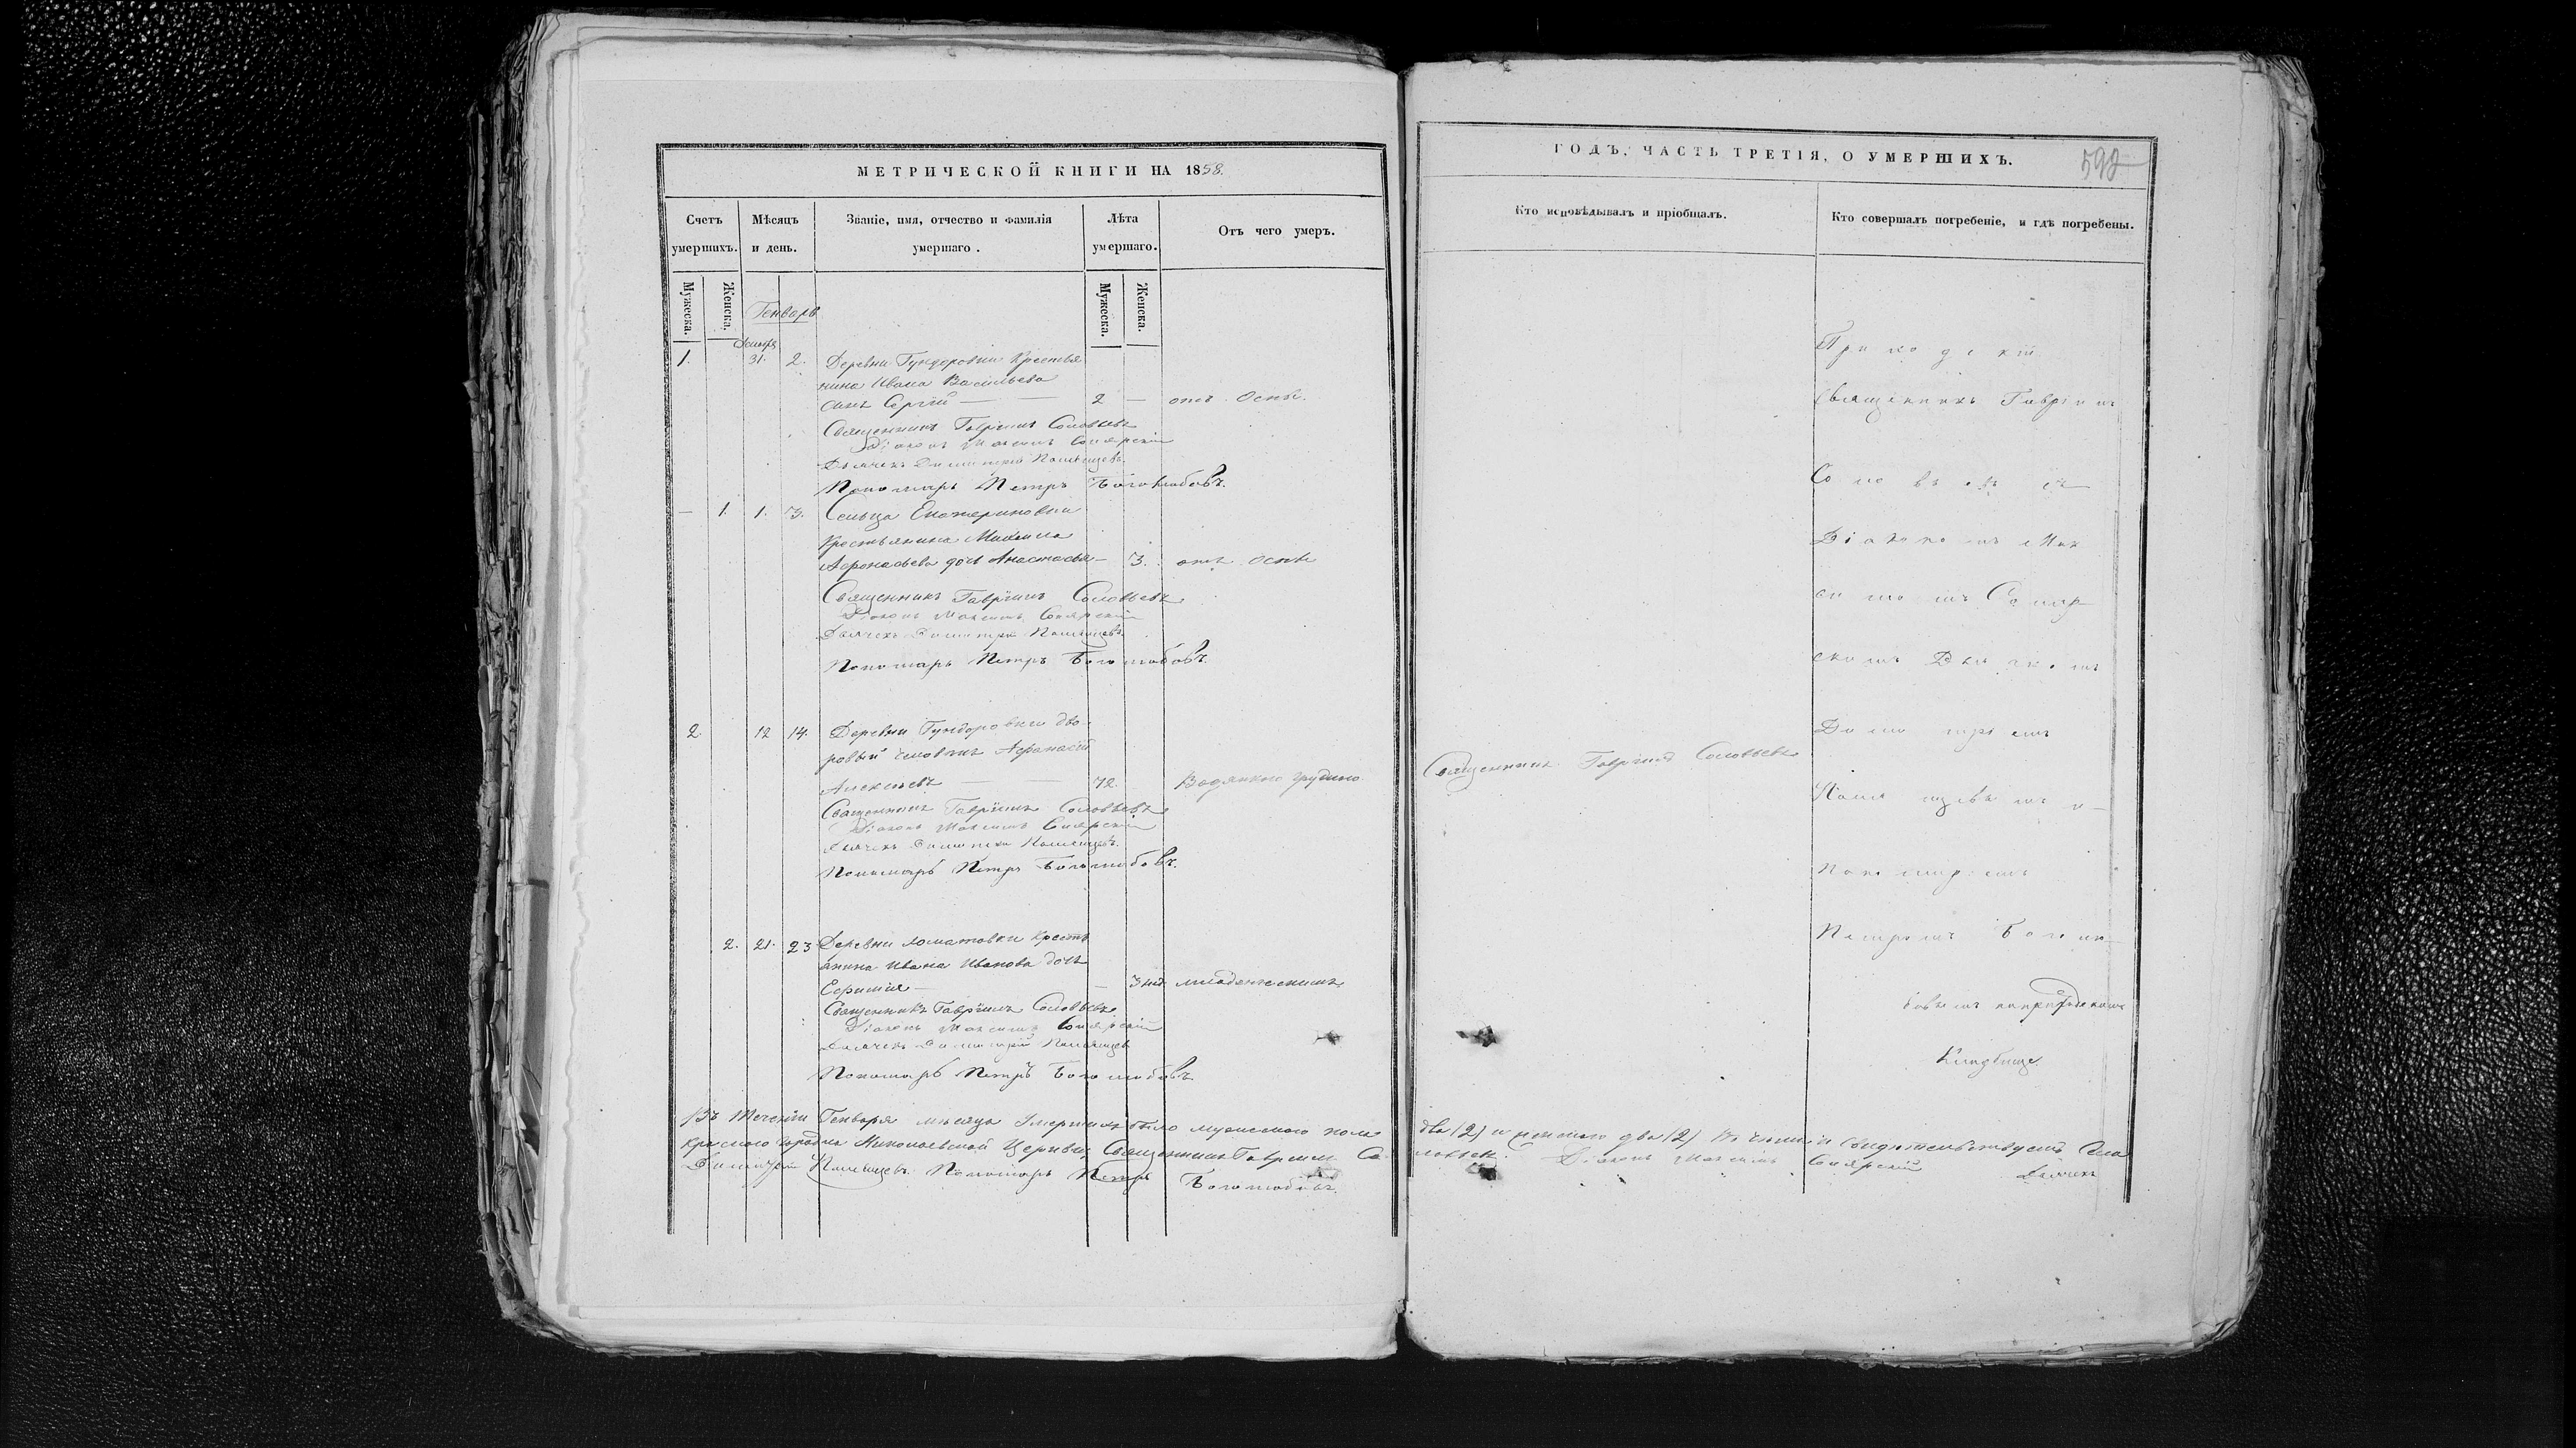 МЕТРИЧЕСКОЙ КНИГИ НА 1858.
Счетъ умершихъ.
Мѣсяцъ и день.
Званіе, имя, отчество и фамилія умершаго.
Лѣта умершаго.
Отъ чего умеръ.
Мужеска.
Женска.
Мужеска.
Женска.
Генварь
1. 31. 2. Деревни Гундоровки крестья
нина Ивана Васильева
сынъ Сергій — 2 — отъ Оспы.
Священникъ Гавріилъ Соловьевъ
Діаконъ Максимъ
Дьячекъ Димитрій
Пономарь Петръ Боголюбовъ.
— 1. 1. 3. Сельца Екатериновки
Крестьянина Михаила
Афонасьева дочь Анастасія — 3. отъ оспы
Священникъ Гавріилъ Соловьевъ
Діаконъ Максимъ
Дьячекъ Димитрій
Пономарь Петръ Боголюбовъ.
2. 12 14. Деревни Гундоровки дво
ровый человѣкъ Афанасій
Алексѣевъ — 72. Водянкою грудною
Священникъ Гавріилъ Соловьевъ
Діаконъ Максимъ
Дьячекъ
Пономарь Петръ Боголюбовъ.
2. 21. 23 Деревни крестья
анина Ивана Иванова дочь
— 3 нед. младенческимъ
Священникъ Гавріилъ Соловьевъ
Діаконъ Максимъ
Дьячекъ Димитрій
Пономарь Петръ Боголюбовъ.
Въ теченіи Генваря мѣсяца умершихъ было мужескаго пола
Николаевской Церкви Священникъ Гавріилъ Со
Димитрій Пономарь Петръ Боголюбовъ.
ГОДЪ, ЧАСТЬ ТРЕТІЯ, О УМЕРШИХЪ.
592
Кто исповѣдывалъ и пріобщалъ.
Кто совершалъ погребеніе, и гдѣ погребены.
Приходскій
Священникъ Гавріилъ
Соловьевъ съ
Діакономъ Мак
симомъ
скимъ Дьячкомъ
Димитріемъ
и
Пономаремъ
Петромъ Боголю
бовымъ на приходскомъ
Кладбище.
Священникъ Гавріилъ Соловьевъ
два (2) и женскаго два (2) въ чемъ и свидѣтельствуемъ Села
ловьевъ. Діаконъ Максимъ
Дьячекъ